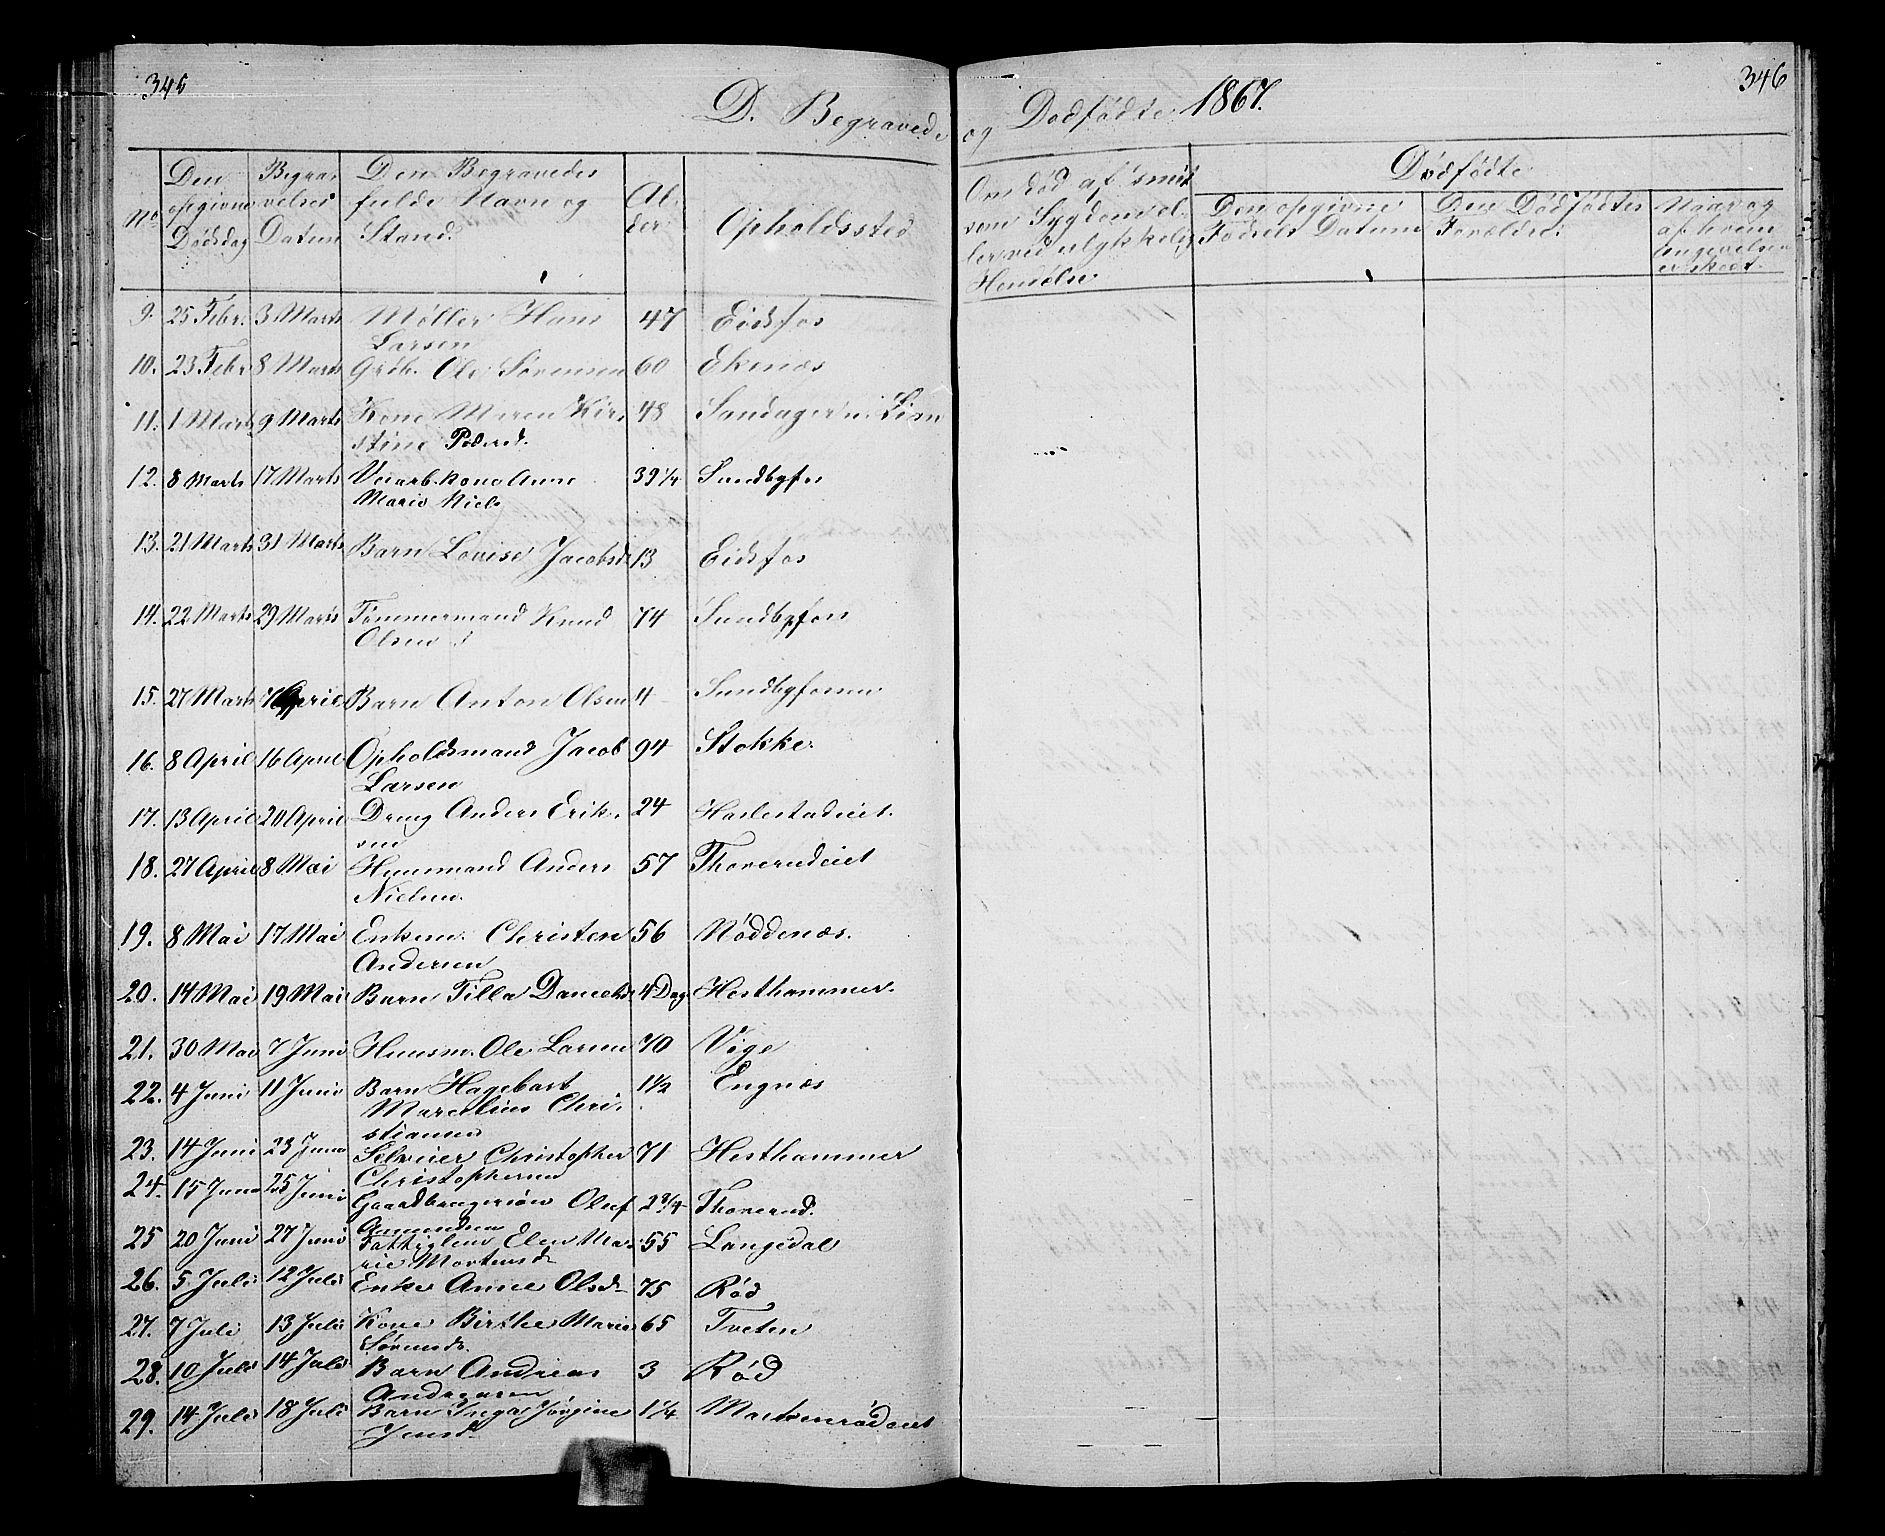 345
346
D. Begravede og Dødfødte 1867.
No
Den opgivne Dødsdag
Begravelses Datum
Den Begravedes fulde Navn og Stand.
Alder
Opholdssted
Om død af smitsom Sygdom eller ved ulykkelig Hendelse
Dødfødte
Den opgivne Fødsels Datum
Den Dødfødtes Forældre
Naar og af hvem Angivelsen er skeet.
9. 25 Febr. 3 Marts Møller Hans 47 Eidsfos
Larsen
10. 23 Febr 8 Marts Grbr. Ole Sørensen 60 Ekenæs
11. 1 Marts 9 Marts Kone Maren Kir- 48 Sandager i
stine Pedersd.
12. 8 Marts 17 Marts Veiarb. kone Anne 39 1/4 Sundbyfos
Marie Niels
13. 21 Marts 31 Marts Barn Lovise Jacobsd 13 Eidsfos
14. 22 Marts 29 Marts Tømmermand Knud 74 Sundbyfos
Olsen
15. 27 Marts 7 April Barn Anton Olsen 4 Sundbyfossen
16. 8 April 16 April Opholdsmand Jacob 94 Stokke
Larsen
17. 13 April 20 April Dreng Anders Erik- 24 Haslestadeiet.
sen
18. 27 April 8 Mai Huusmand Anders 57 Thoverudeiet
Nielsen.
19. 8 Mai 17 Mai Enkem. Christen 56 Nøddenæs.
Andersen
20. 14 Mai 19 Mai Barn Tilla Danielsd 4 Dag Hesthammer.
21. 30 Mai 7 Juni Huusm. Ole Larsen 70 Vige
22. 4 Juni 11 Juni Barn Hagebart 1 1/2 Engnæs
Marcelius Chri-
stiansen
23. 14 Juni 23 Juni Selveier Christopher 71 Hesthammer
Christophersen
24. 15 Juni 25 Juni Gaardbrugersøn Oluf 2 3/4 Thoverud.
Amundsen
25 20 Juni 27 Juni Fattiglem Elen Ma- 55 Langedal
rie Mortensd
26. 5 Juli 12 Juli Enke Anne Olsd 75 Rød
27. 7 Juli 13 Juli Kone Birthe Marie 65 Tveten
Sørensdr.
28. 10 Juli 14 Juli Barn Andreas 3 Rød
Andreasen
29. 14 Juli 18 Juli Barn Inga Jørgine 1 1/4
Jensd